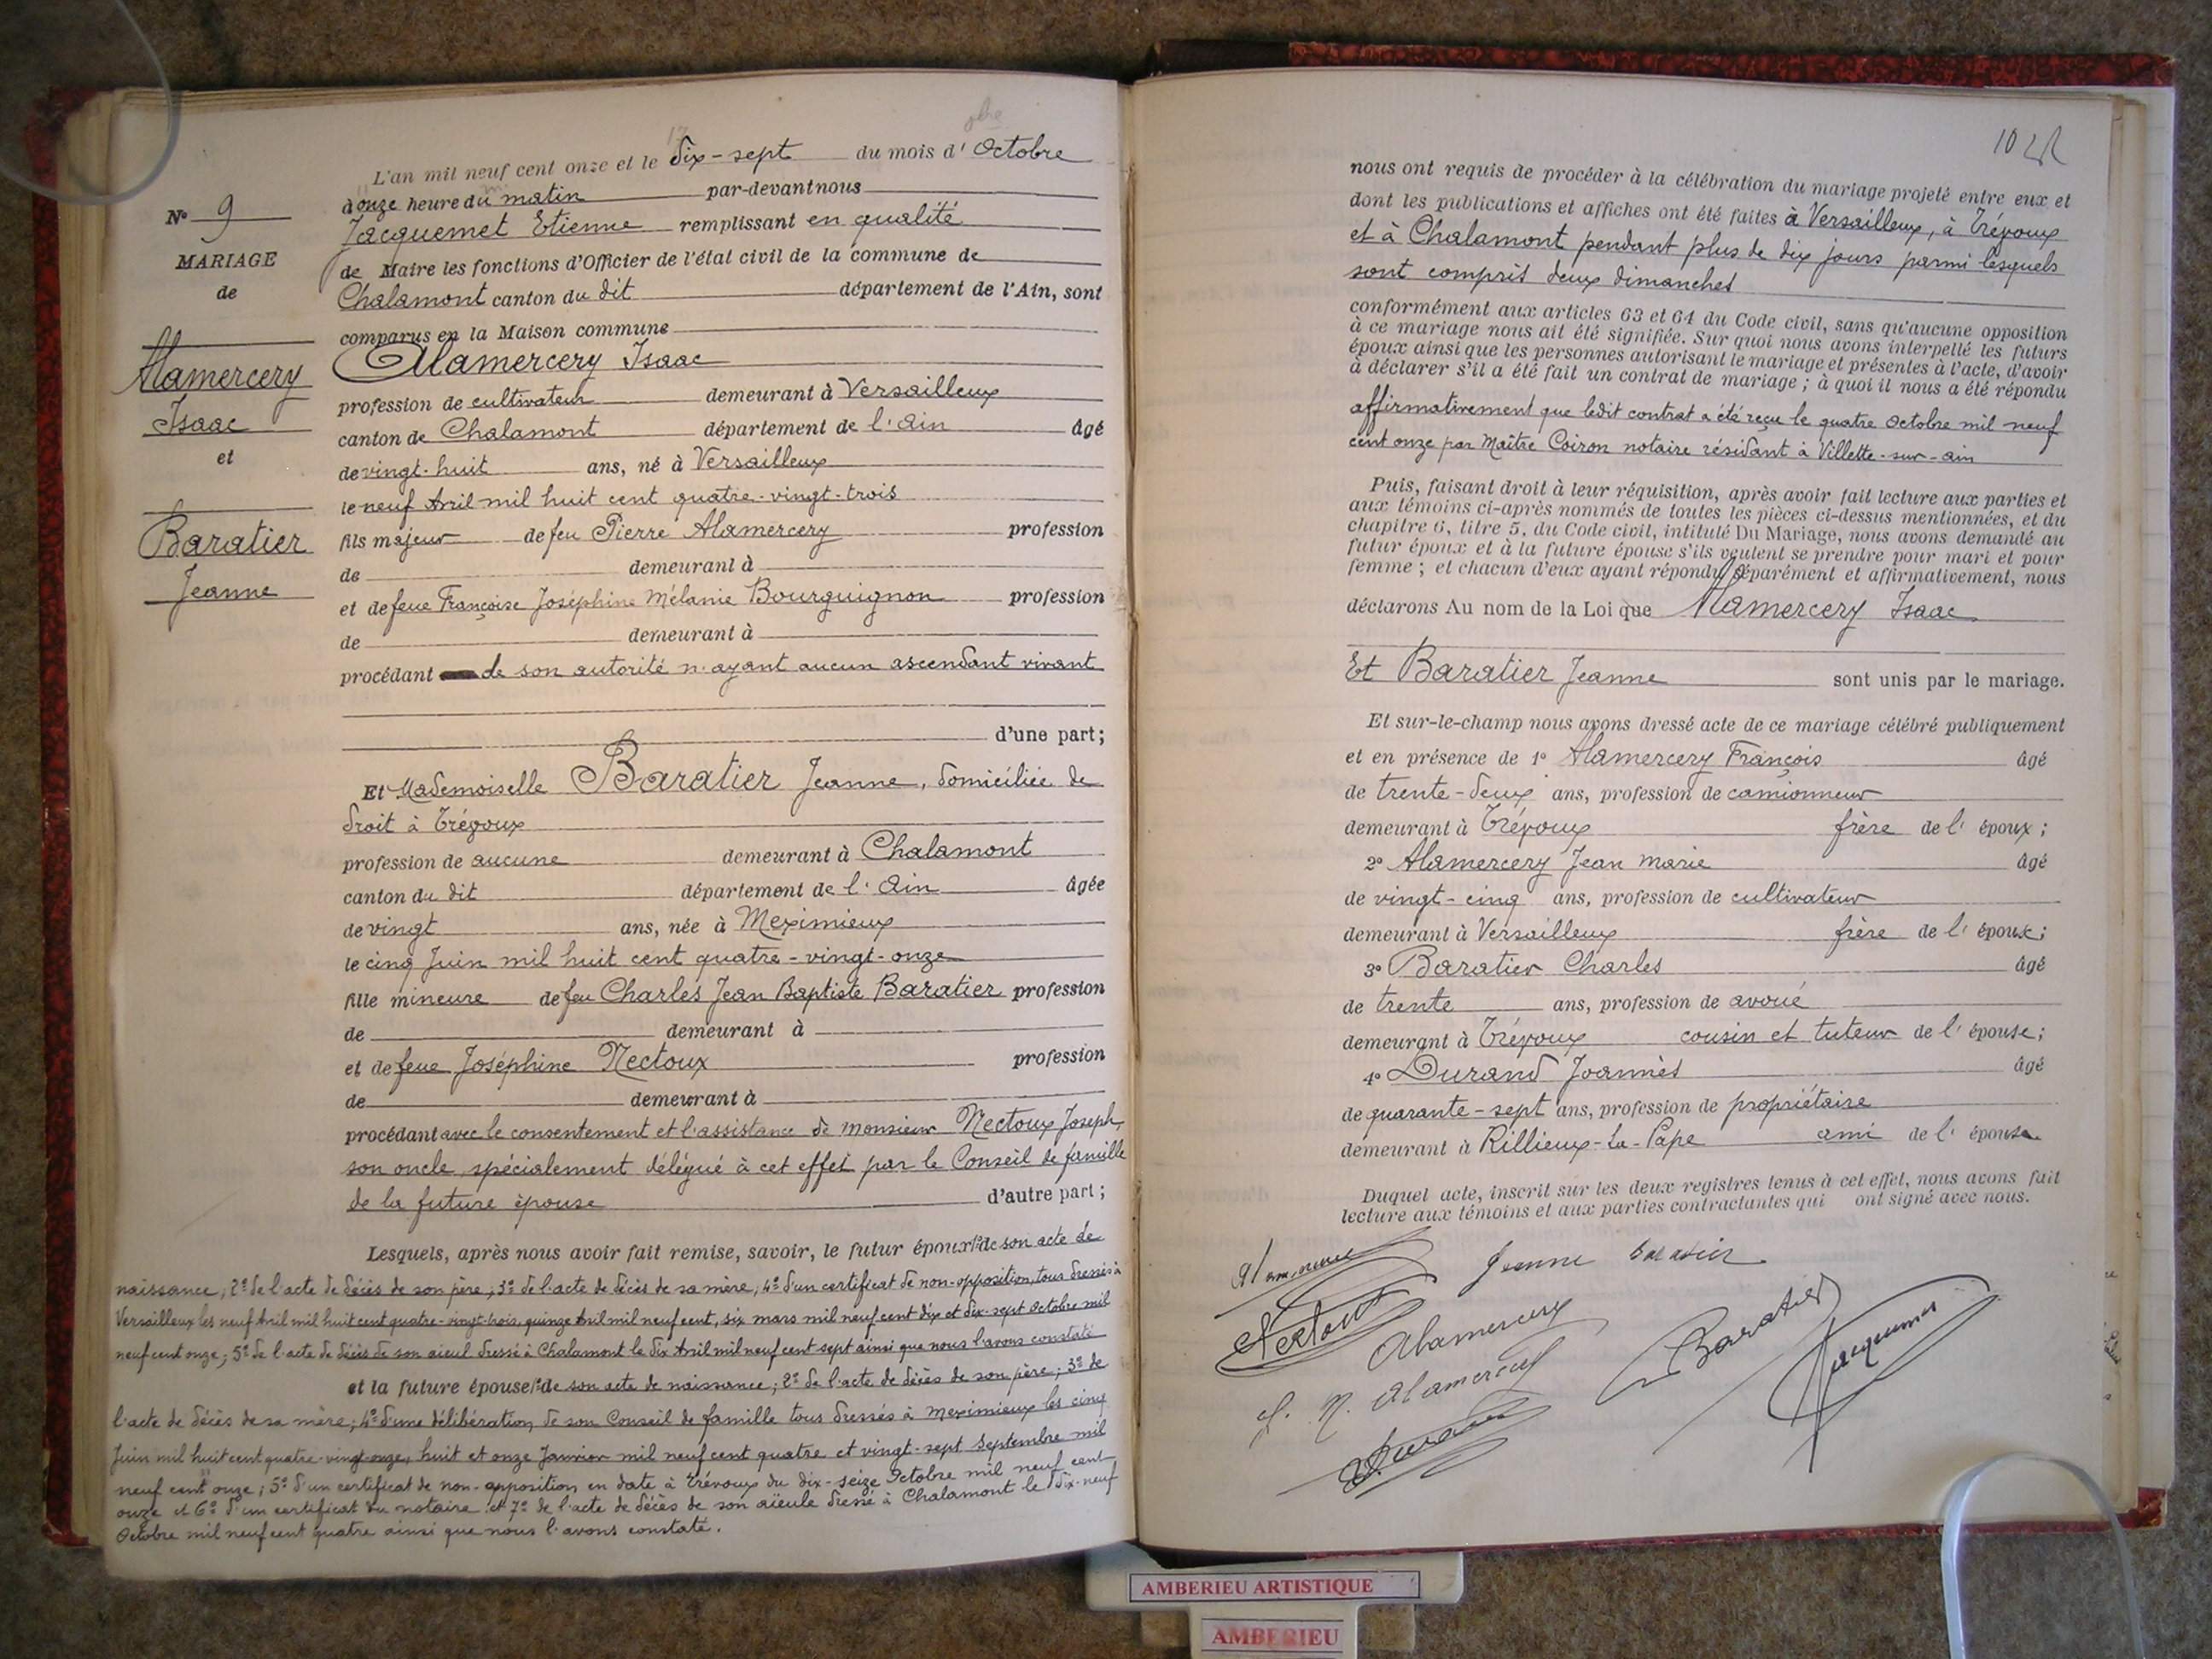 17 8bre
L'an mil neuf cent onze et le dix-sept du mois d' Octobre
à onze heure du matin par-devant nous
Jacquemet Etienne remplissant en qualité
de Maire les fonctions d'Officier de l'état civil de la commune de
Chalamont canton du dit département de l'Ain, sont
comparus en la Maison commune
N° 9
MARIAGE
de
Alamercery
Isaac
et
Baratier
Jeanne
Alamercery Isaac
profession de cultivateur demeurant à Versailleux
canton de Chalamont département de l'Ain âgé
de vingt-huit ans, né à Versailleux
le neuf Avril mil huit cent quatre-vingt-trois
fils majeur de feu Pierre Alamercery profession
de demeurant à
et de feue Françoise Joséphine Mélanie Bourguignon profession
de demeurant à
procédant de son autorité n'ayant aucun ascendant vivant
d'une part;
Et Mademoiselle Baratier Jeanne, domiciliée de
droit à Trévoux
profession de aucune demeurant à Chalamont
canton du dit département de l'Ain âgée
de vingt ans, née à Meximieux
le cinq Juin mil huit cent quatre-vingt-onze
fille mineure de feu Charles Jean Baptiste Baratier profession
de demeurant à
et de feue Joséphine Nectoux profession
de demeurant à
procédant avec le consentement et l'assistance de monsieur Nectoux Joseph,
son oncle, spécialement délégué à cet effet par le Conseil de famille
de la future épouse d'autre part;
Lesquels, après nous avoir fait remise, savoir, le futur époux 1° de son acte de
naissance; 2° de l'acte de décès de son père; 3° de l'acte de décès de sa mère; 4° d'un certificat de non-opposition, tous dressés à
Versailleux les neuf Avril mil huit cent quatre-vingt-trois, quinze Avril mil neuf cent, six mars mil neuf cent dix et dix-sept Octobre mil
neuf cent onze; 5° de l'acte de décès de son aïeul dressé à Chalamont le dix Avril mil neuf cent sept ainsi que nous l'avons constaté
et la future épouse 1° de son acte de naissance; 2° de l'acte de décès de son père; 3° de
l'acte de décès de sa mère; 4° d'une délibération de son Conseil de famille tous dressés à Meximieux les cinq
Juin mil huit cent quatre-vingt-onze, huit et onze Janvier mil neuf cent quatre et vingt-sept Septembre mil
neuf cent onze; 5° d'un certificat de non-opposition en date à Trévoux du dix-seize Octobre mil neuf cent
onze et 6° d'un certificat du notaire et 7° de l'acte de décès de son aïeule dressé à Chalamont le dix-neuf
Octobre mil neuf cent quatre ainsi que nous l'avons constaté.
102
nous ont requis de procéder à la célébration du mariage projeté entre eux et
dont les publications et affiches ont été faites à Versailleux, à Trévoux
et à Chalamont pendant plus de dix jours parmi lesquels
sont compris deux dimanches
conformément aux articles 63 et 64 du Code civil, sans qu'aucune opposition
à ce mariage nous ait été signifiée. Sur quoi nous avons interpellé les futurs
époux ainsi que les personnes autorisant le mariage et présentes à l'acte, d'avoir
à déclarer s'il a été fait un contrat de mariage; à quoi il nous a été répondu
affirmativement que ledit contrat a été reçu le quatre Octobre mil neuf
cent onze par Maître Coiron notaire résidant à Villette-sur-ain
Puis, faisant droit à leur réquisition, après avoir fait lecture aux parties et
aux témoins ci-après nommés de toutes les pièces ci-dessus mentionnées, et du
chapitre 6, titre 5, du Code civil, intitulé Du Mariage, nous avons demandé au
futur époux et à la future épouse s'ils veulent se prendre pour mari et pour
femme; et chacun d'eux ayant répondu séparément et affirmativement, nous
déclarons Au nom de la Loi que Alamercery Isaac
Et Baratier Jeanne sont unis par le mariage.
Et sur-le-champ nous avons dressé acte de ce mariage célébré publiquement
et en présence de 1° Alamercery François âgé
de trente-deux ans, profession de camionneur
demeurant à Trévoux frère de l'époux;
2° Alamercery Jean marie âgé
de vingt-cinq ans, profession de cultivateur
demeurant à Versailleux frère de l'époux;
3° Baratier Charles âgé
de trente ans, profession de avoué
demeurant à Trévoux cousin et tuteur de l'épouse;
4° Durand Joannès âgé
de quarante-sept ans, profession de propriétaire
demeurant à Rillieux-La-Pape ami de l'épouse
Duquel acte, inscrit sur les deux registres tenus à cet effet, nous avons fait
lecture aux témoins et aux parties contractantes qui ont signé avec nous.
Jeanne Baratier
Nectoux
Alamercery
Baratier
Jacquemet
J. M. Alamercery
Durand
AMBERIEU ARTISTIQUE
AMBERIEU